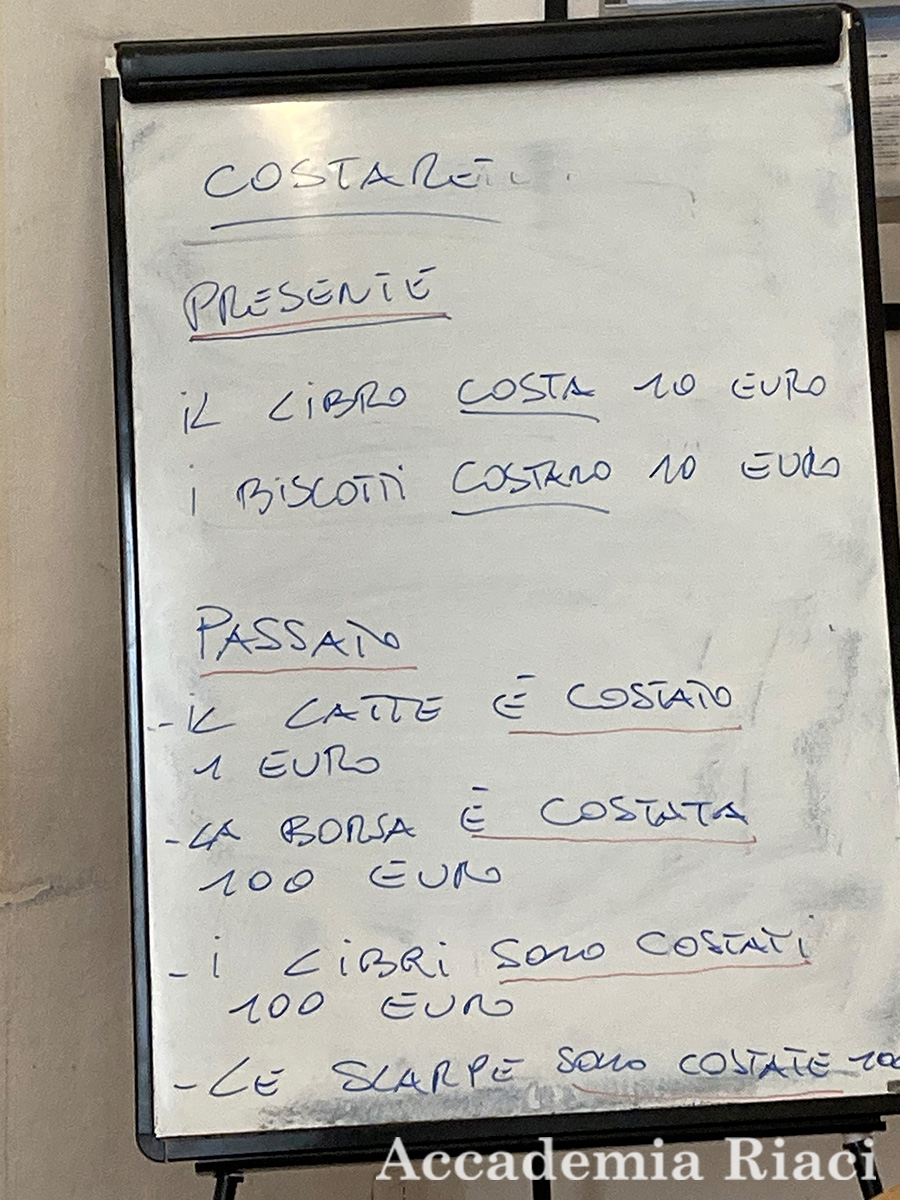 COSTARE
PRESENTE
iL LiBRO COSTA 10 EURO
i BiSCOTTi COSTANO 10 EURO
PASSATO
- iL LATTE È COSTATO
1 EURO
- LA BORSA È COSTATA
100 EURO
- i LiBRi SONO COSTATi
100 EURO
- LE SCARPE SONO COSTATE 100
Accademia Riaci